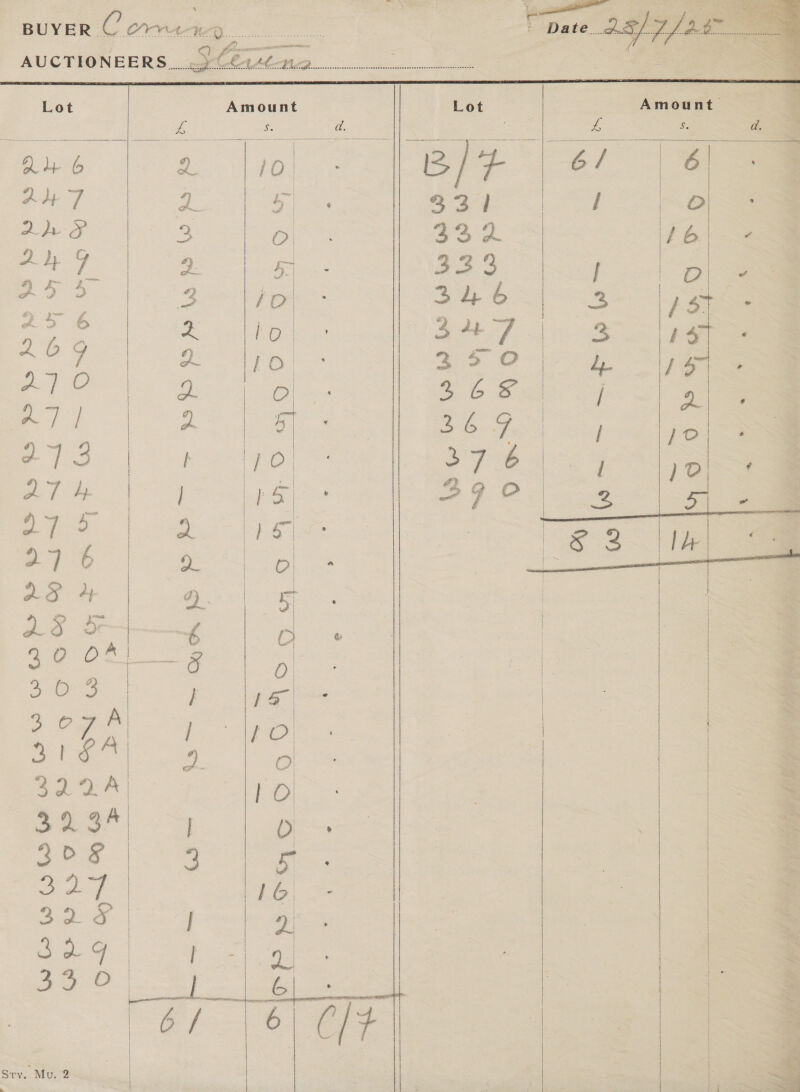 BUYER
Date 28/7/25
AUCTIONEERS Stevens
Lot Amount
£ s. d.
246 2 10 -
247 2 5 -
248 3 0 -
249 2 5 -
255 3 10 -
256 2 10 -
269 2 10 -
270 2 0 -
271 2 5 -
273 1 10 -
274 1 15 -
275 2 15 -
276 2 0 -
284 2 5 -
285 6 0 -
300A 8 0 -
303 1 15 -
307A 1 10 -
318A 2 0 -
322A 10 -
323A 1 0 -
308 3 5 -
327 16 -
328 1 2 -
329 1 2 -
330 1 6 -
61 6 C/7
Lot Amount
£ s. d.
B/7 61 6 -
331 1 0 -
332 16 -
333 1 0 -
346 3 15 -
347 3 15 -
350 4 15 -
368 1 2 -
369 1 10 -
376 1 10 -
390 3 5 -
83 14 -
Sty. Mu. 2